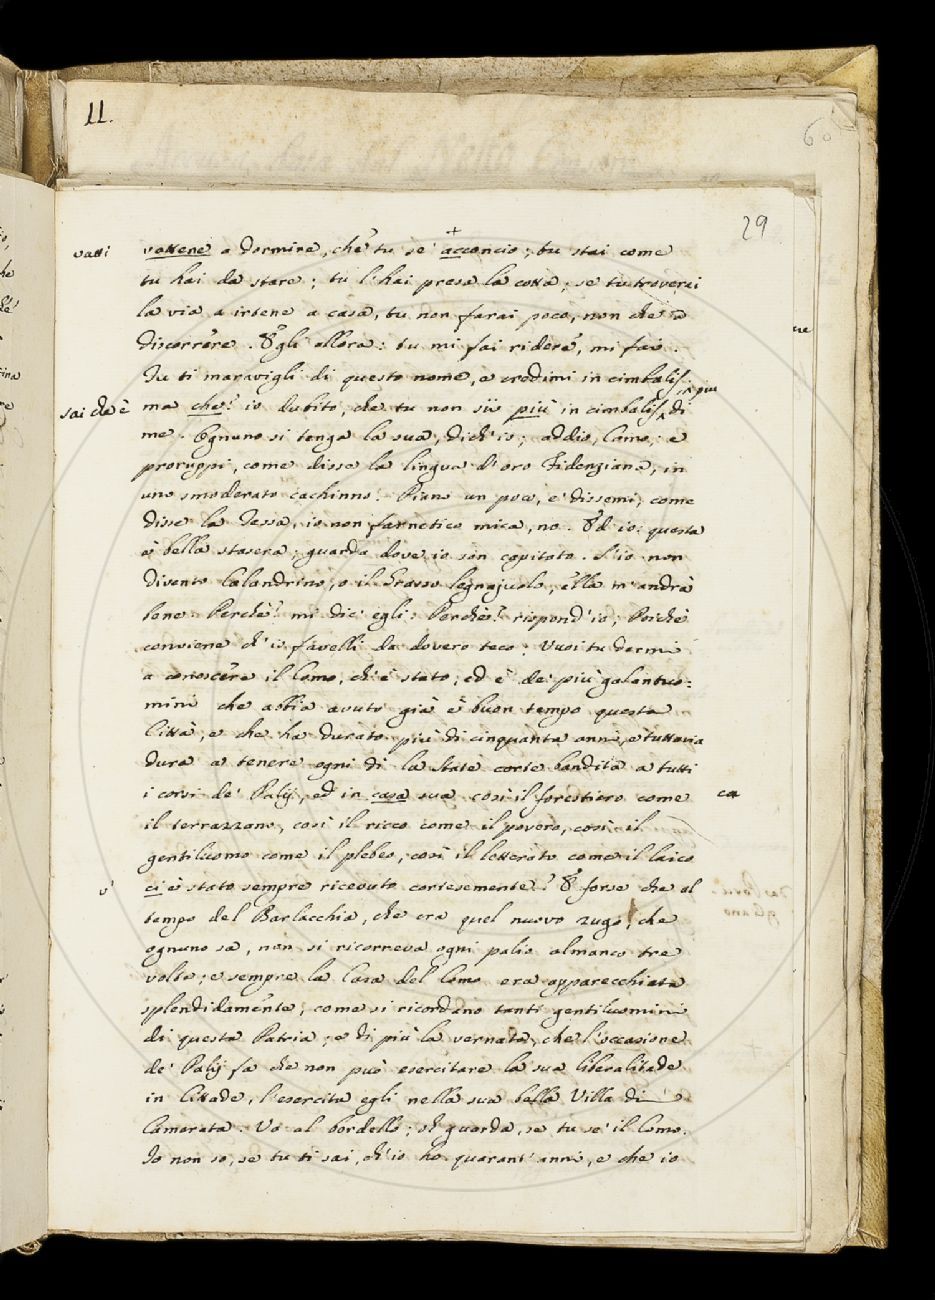 11.
60
29
vatti
vattene a dormire, chè tu se' acconcio; tu stai come
tu hai da stare; tu l'hai presa la cotta; se tu troverai
la via a irtene a casa, tu non farai poco, non che a
discorrere. Egli allora: tu mi fai ridere, mi fai.
Tu ti maravigli di questo nome, e credimi in cimbalis;
in più
sai che è
ma che? io dubito, che tu non sii più in cimbalis di
me. Ognuno si tenga la sua, dich'io; addio, Como; e
proruppi, come disse la lingua d'oro Fidenziana, in
uno smoderato cachinno. Piano un poco, e' dissemi, come
disse la Tessa, io non farnetico mica, no. Ed io: questa
è bella stasera; guarda dove io son capitato. S'io non
divento Calandrino, o il Grasso legnajuolo, ella m'andrà
bene. Perchè? mi dic' egli: Perchè? rispond'io; Poichè
conviene ch'io favelli da dovero teco: Vuoi tu darmi
a conoscere il Como, ch'è stato, ed è de' più galantuo=
mini che abbia avuto già è buon tempo questa
Città, e che ha durato più di cinquanta anni, e tuttavia
dura a tenere ogni dì la state corte bandita a tutti
i corsi de' Palij, ed in casa sua così il forestiero come
ca
il terrazzano, così il ricco come il povero, così il
gentiluomo come il plebeo, così il letterato come il laico
v'
ci è stato sempre ricevuto cortesemente? E forse che al
tempo del Barlacchia, che era quel nuovo zugo, che
ognuno sa, non si ricorreva ogni palio almanco tre
volte; e sempre la Casa del Como era apparecchiata
splendidamente; come si ricordano tanti gentiluomini
di questa Patria; e di più la vernata, che l'occasione
de' Palij fa che non può esercitare la sua liberalitade
in Cittade, l'esercita egli nella sua bella Villa di
Camerata. Va al bordello; sì guarda, se tu se' il Como.
Io non so, se tu ti sai, ch'io ho quarant'anni, e che io